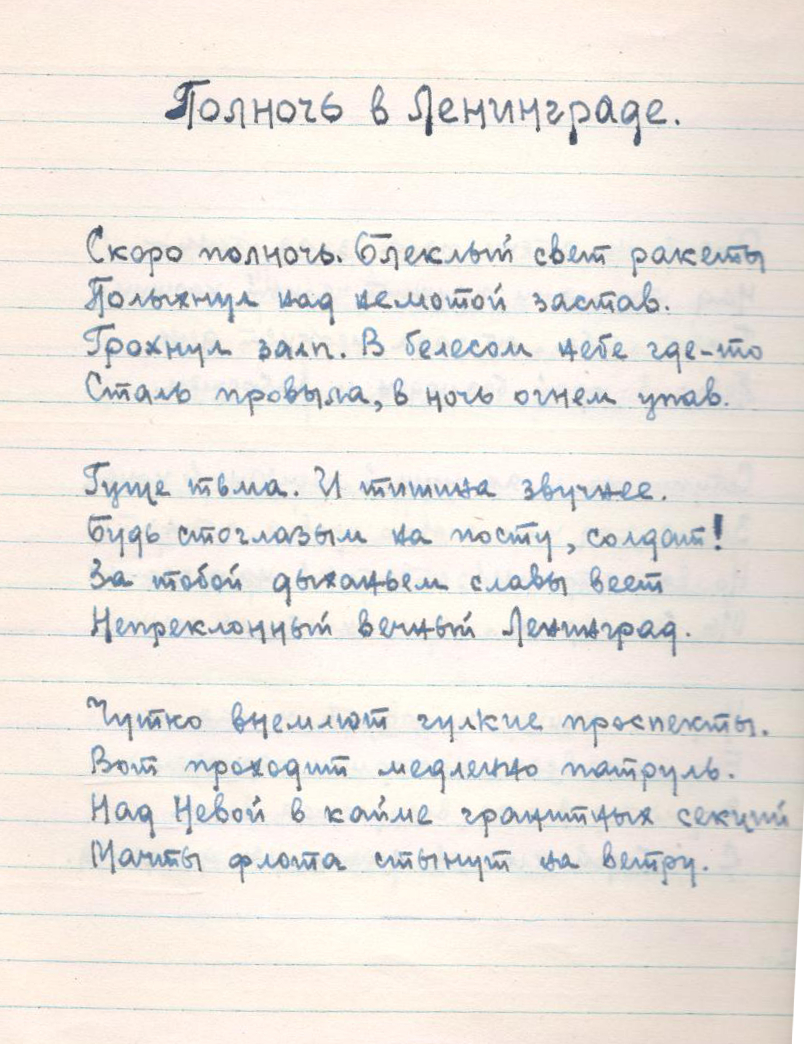 Полночь в Ленинграде.
Скоро полночь. Блеклый свет ракеты
Полыхнул над немотой застав.
Грохнул залп. В белесом небе где-то
Сталь провыла, в ночь огнем упав.
Гуще тьма. И тишина звучнее.
Будь стоглазым на посту, солдат!
За тобой дыханьем славы веет
Непреклонный вечный Ленинград.
Чутко внемлют гулкие проспекты.
Вот проходит медленно патруль.
Над Невой в кайме гранитных секций
Мачты флота стынут на ветру.